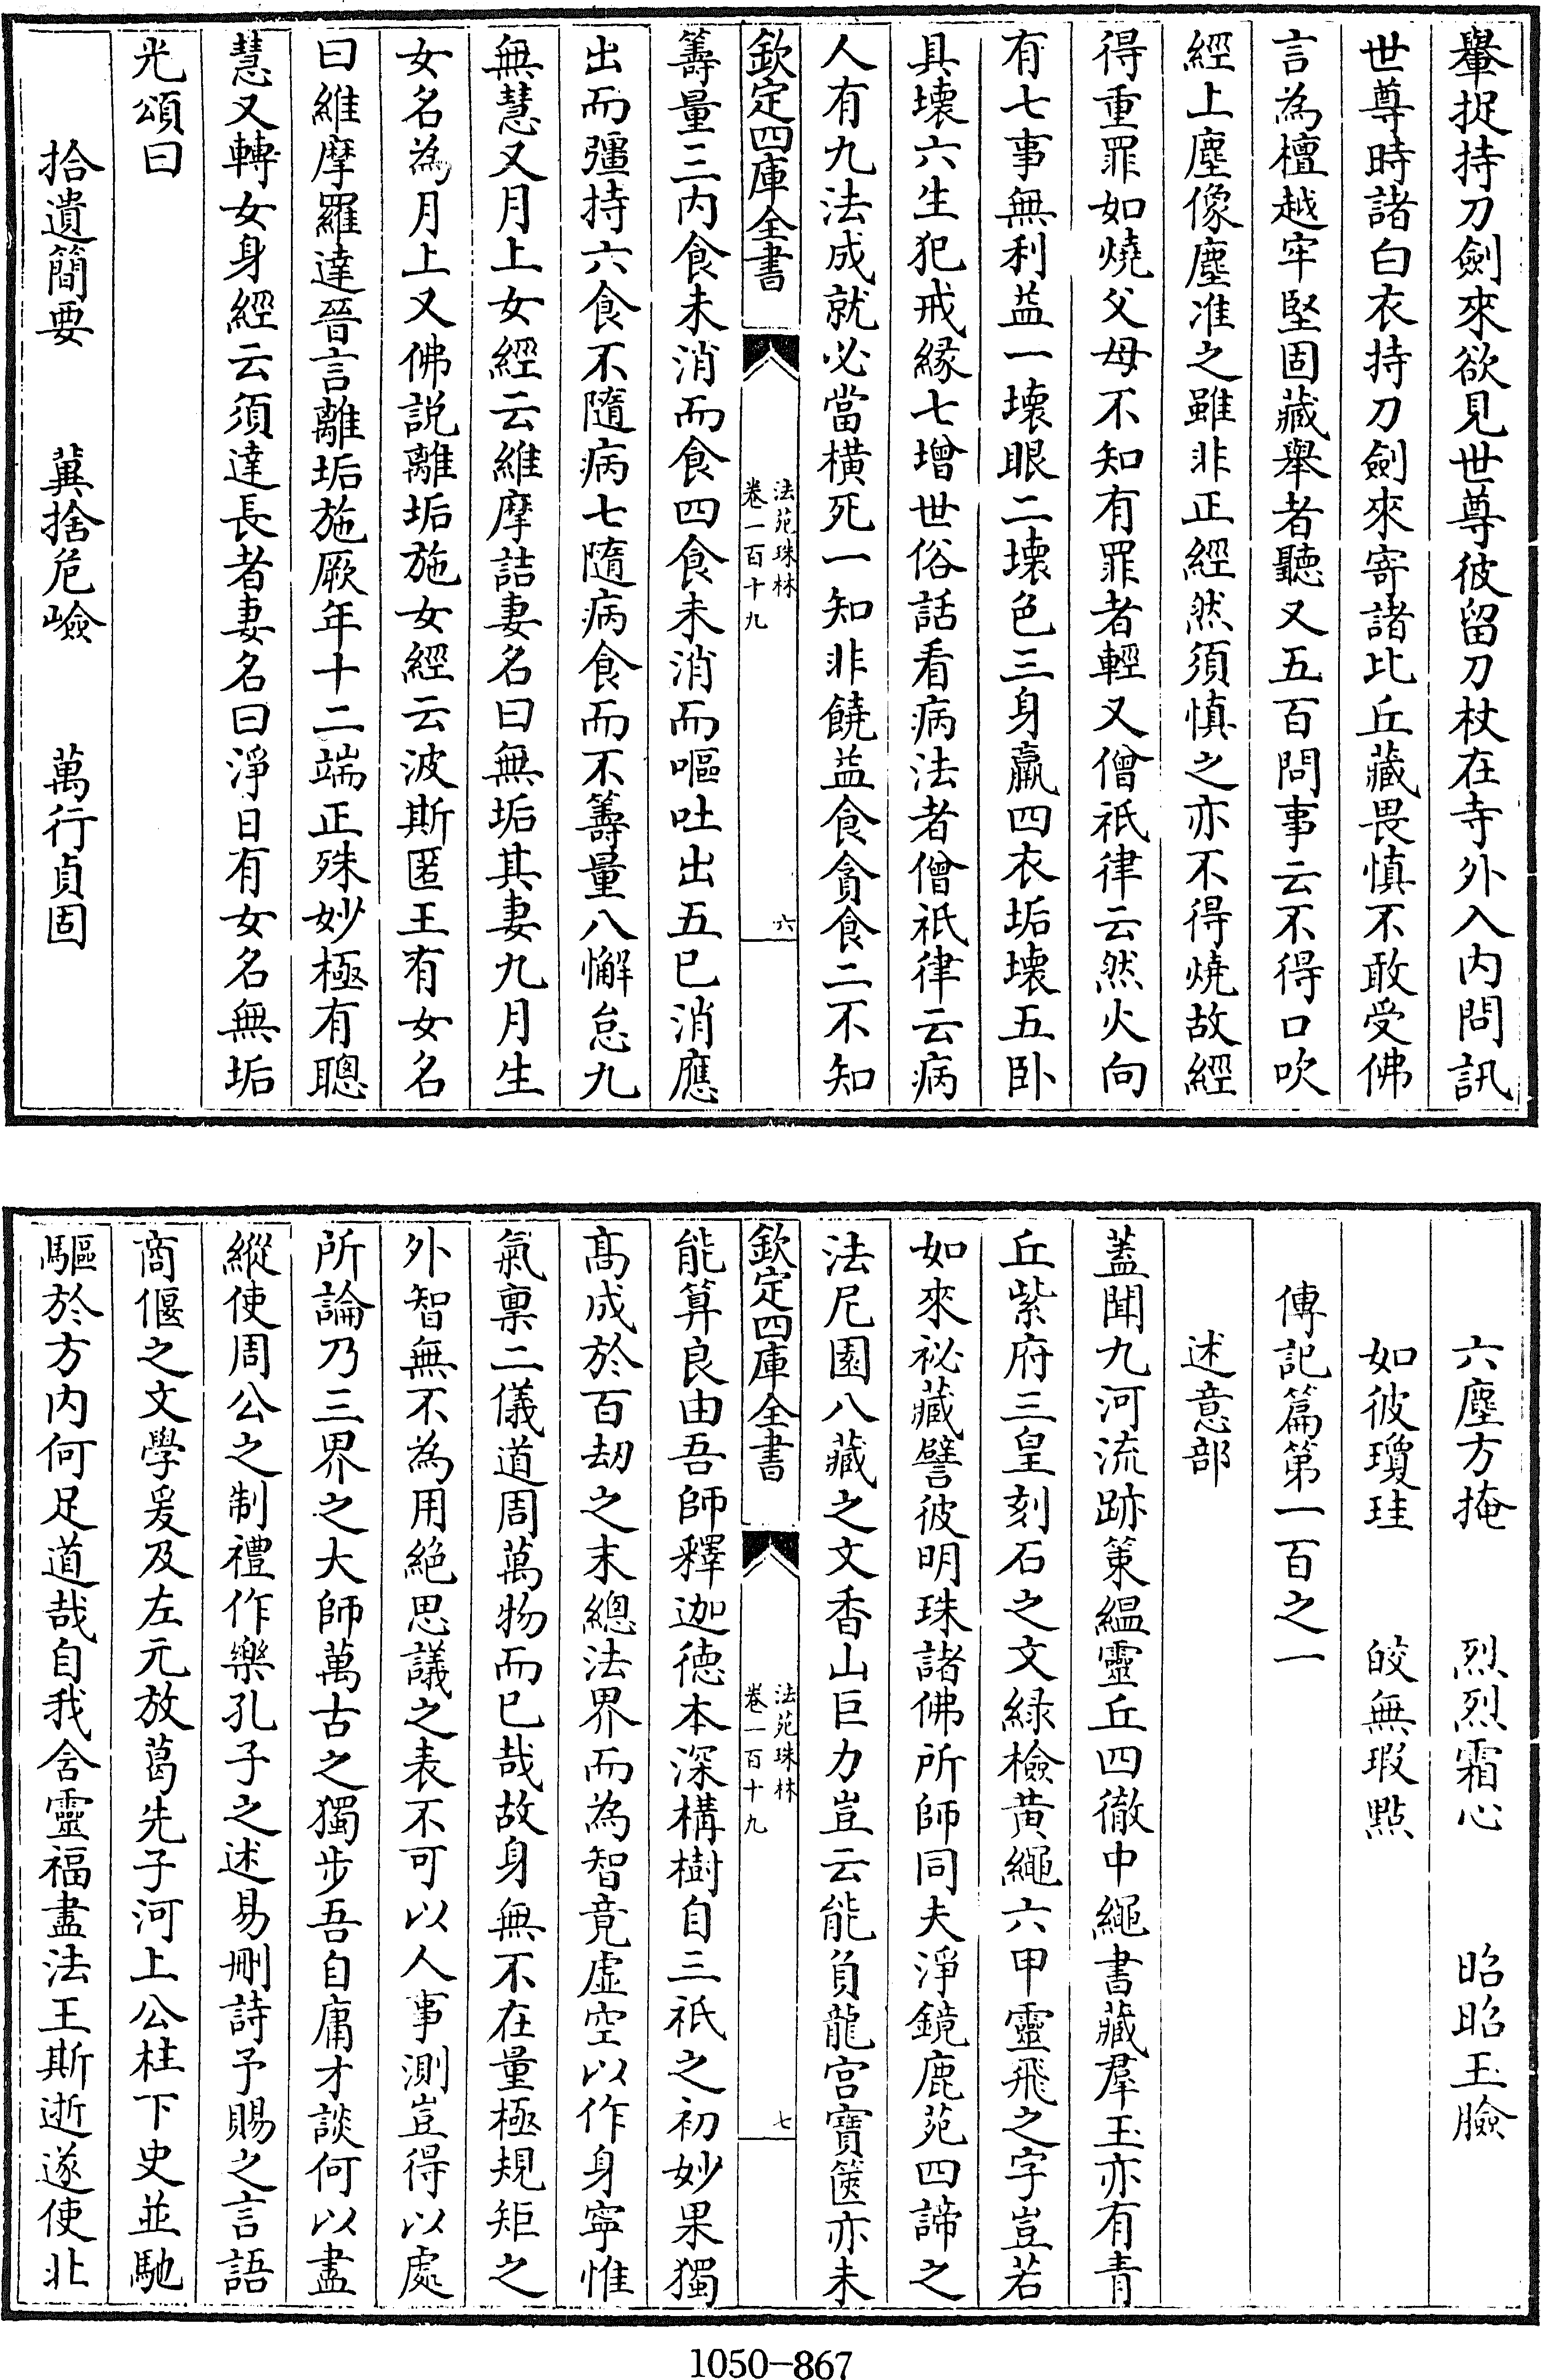 轝捉持刀劍來欲見世尊彼留刀杖在寺外入内問訊
世尊時諸白衣持刀劍來寄諸比丘藏畏慎不敢受佛
言為檀越牢堅固藏舉者聽又五百問事云不得口吹
經上塵像塵准之雖非正經然須慎之亦不得燒故經
得重罪如燒父母不知有罪者輕又僧祇律云然火向
有七事無利益一壞眼二壞色三身羸四衣垢壞五卧
具壞六生犯戒縁七增世俗話看病法者僧祇律云病
人有九法成就必當橫死一知非饒益食貪食二不知
欽定四庫全書
法苑珠林
卷一百十九
六
籌量三内食未消而食四食未消而嘔吐出五已消應
出而彊持六食不隨病七隨病食而不籌量八懈怠九
無慧又月上女經云維摩詰妻名曰無垢其妻九月生
女名為月上又佛説離垢施女經云波斯匿王有女名
曰維摩羅達晉言離垢施厥年十二端正殊妙極有聰
慧又轉女身經云須達長者妻名曰淨日有女名無垢
光頌曰
拾遺簡要　冀捨危嶮　萬行貞固
六塵方掩　烈烈霜心　昭昭玉臉
如彼瓊珪　皎無瑕點
傳記篇第一百之一
述意部
蓋聞九河流跡策緼靈丘四徹中繩書藏羣玉亦有青
丘紫府三皇刻石之文緑檢黄繩六甲靈飛之字豈若
如來祕藏譬彼明珠諸佛所師同夫淨鏡鹿苑四諦之
法尼園八藏之文香山巨力豈云能負龍宫寶篋亦未
欽定四庫全書
法苑珠林
卷一百十九
七
能算良由吾師釋迦德本深構樹自三祇之初妙果獨
髙成於百劫之末總法界而為智竟虚空以作身寧惟
氣稟二儀道周萬物而已哉故身無不在量極規矩之
外智無不為用絶思議之表不可以人事測豈得以處
所論乃三界之大師萬古之獨步吾自庸才談何以盡
縱使周公之制禮作樂孔子之述易刪詩予賜之言語
商偃之文學爰及左元放葛先子河上公柱下史並馳
驅於方内何足道哉自我含靈福盡法王斯逝遂使北
1050-867